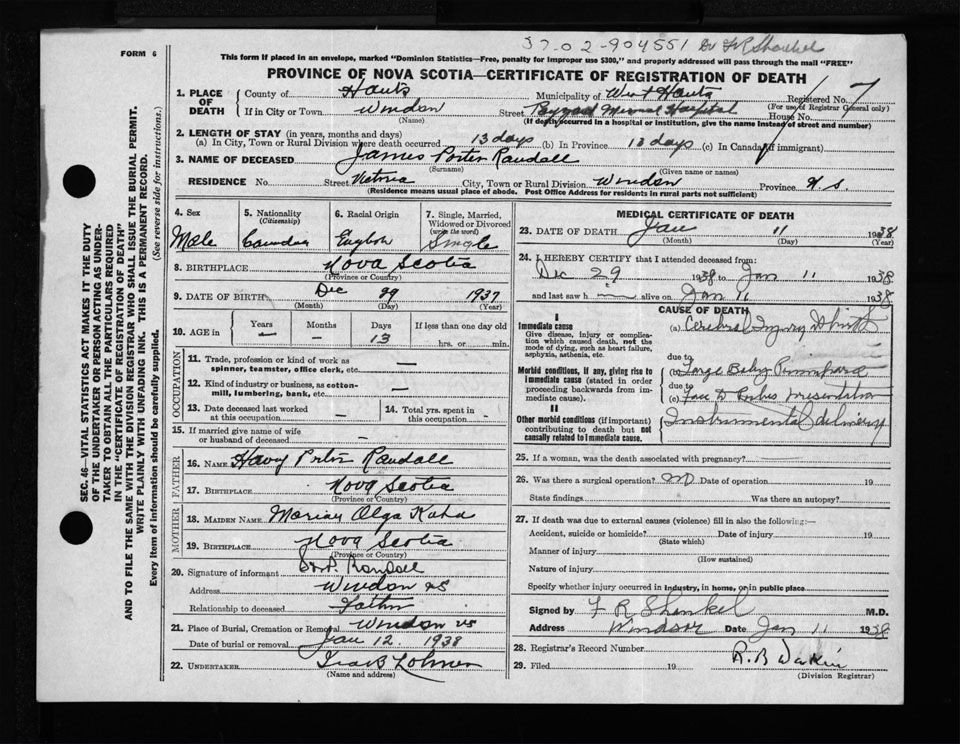 FORM 6
3702-904551 Dr FR Shankel
This form if placed in an envelope, marked "Dominion Statistics—Free, penalty for improper use $300," and properly addressed will pass through the mail "FREE"
PROVINCE OF NOVA SCOTIA—CERTIFICATE OF REGISTRATION OF DEATH
1. PLACE OF DEATH
County of Hants Municipality of West Hants Registered No. 7
(For use of Registrar General only)
If in City or Town Windsor Street Memorial Hospital House No.
(Name) (If death occurred in a hospital or institution, give the name instead of street and number)
2. LENGTH OF STAY (in years, months and days)
(a) In City, Town or Rural Division where death occurred 13 days (b) In Province 13 days (c) In Canada (if immigrant)
3. NAME OF DECEASED James Porter Randall
(Surname) (Given name or names)
RESIDENCE No. Street Victoria City, Town or Rural Division Windsor Province N.S.
(Residence means usual place of abode. Post Office Address for residents in rural parts not sufficient)
4. Sex Male
5. Nationality (Citizenship) Canadian
6. Racial Origin English
7. Single, Married, Widowed or Divorced (write the word) Single
8. BIRTHPLACE Nova Scotia
(Province or Country)
9. DATE OF BIRTH Dec 29 1937
(Month) (Day) (Year)
10. AGE in Years — Months — Days 13 If less than one day old hrs. or min.
OCCUPATION
11. Trade, profession or kind of work as spinner, teamster, office clerk, etc. —
12. Kind of industry or business, as cotton-mill, lumbering, bank, etc. —
13. Date deceased last worked at this occupation —
14. Total yrs. spent in this occupation —
15. If married give name of wife or husband of deceased —
FATHER
16. NAME Porter Randall
17. BIRTHPLACE Nova Scotia
(Province or Country)
MOTHER
18. MAIDEN NAME Olga
19. BIRTHPLACE Nova Scotia
(Province or Country)
20. Signature of informant Randall
Address Windsor NS
Relationship to deceased Father
21. Place of Burial, Cremation or Removal Windsor NS
Date of burial or removal Jan 12 1938
22. UNDERTAKER
(Name and address)
MEDICAL CERTIFICATE OF DEATH
23. DATE OF DEATH Jan 11 1938
(Month) (Day) (Year)
24. I HEREBY CERTIFY that I attended deceased from:
Dec 29 1938 to Jan 11 1938
and last saw h— alive on Jan 11 1938
CAUSE OF DEATH
I
Immediate cause
Give disease, injury or complication which caused death, not the mode of dying, such as heart failure, asphyxia, asthenia, etc.
(a) Cerebral Injury
due to
Morbid conditions, if any, giving rise to immediate cause (stated in order proceeding backwards from immediate cause).
(b) Large Baby Primipara
due to
(c) Face presentation
II
Other morbid conditions (if important) contributing to death but not causally related to immediate cause.
Instrumental delivery
25. If a woman, was the death associated with pregnancy? —
26. Was there a surgical operation? no Date of operation 19
State findings Was there an autopsy?
27. If death was due to external causes (violence) fill in also the following:—
Accident, suicide or homicide? Date of injury 19
(State which)
Manner of injury
(How sustained)
Nature of injury
Specify whether injury occurred in industry, in home, or in public place
Signed by F R Shankel M.D.
Address Windsor Date Jan 11 1938
28. Registrar's Record Number
29. Filed 19 R.B.
(Division Registrar)
SEC. 46—VITAL STATISTICS ACT MAKES IT THE DUTY
OF THE UNDERTAKER OR PERSON ACTING AS UNDER-
TAKER TO OBTAIN ALL THE PARTICULARS REQUIRED
IN THE "CERTIFICATE OF REGISTRATION OF DEATH"
AND TO FILE THE SAME WITH THE DIVISION REGISTRAR WHO SHALL ISSUE THE BURIAL PERMIT.
WRITE PLAINLY WITH UNFADING INK. THIS IS A PERMANENT RECORD.
Every item of information should be carefully supplied. (See reverse side for instructions.)